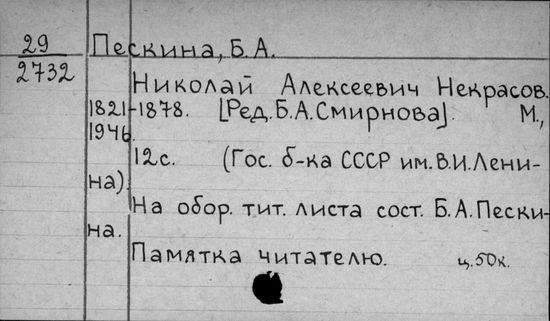 29 Пескина, Б.А.
2732 Николай Алексеевич Некрасов.
1821-1878. [Ред. Б.А.Смирнова]. М.,
1946.
12с. (Гос. б-ка СССР им. В.И.Лени-
на).
На обор. тит. листа сост. Б.А.Пески-
на.
Памятка читателю. ц.50к.